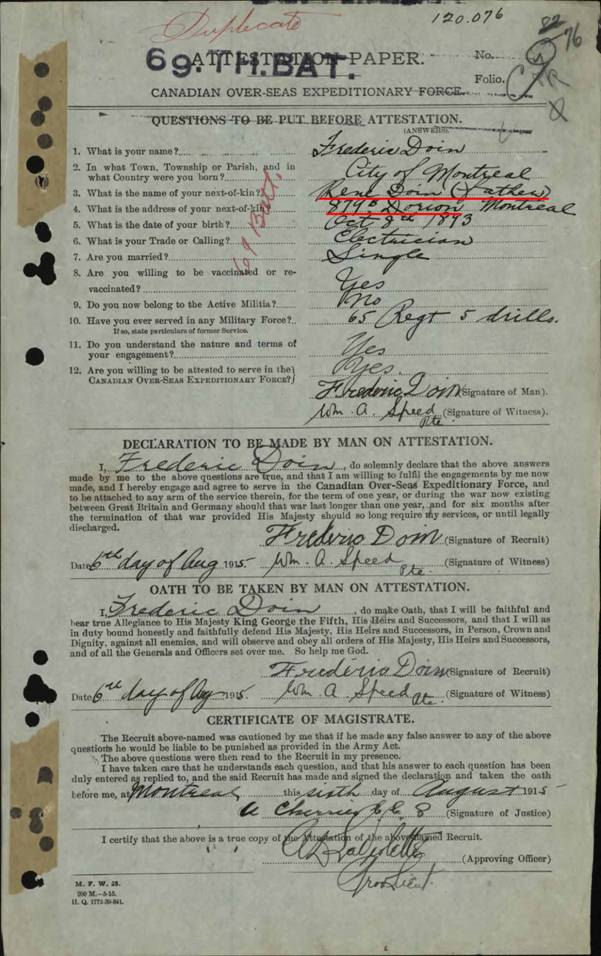 Duplicate
120.076
69.TH.BAT.
ATTESTATION PAPER.
No.
Folio.
CANADIAN OVER-SEAS EXPEDITIONARY FORCE.
QUESTIONS TO BE PUT BEFORE ATTESTATION.
(ANSWERS)
1. What is your name? Frederic Doin
2. In what Town, Township or Parish, and in
what Country were you born? City of Montreal
3. What is the name of your next-of-kin? Rene Doin (Father)
4. What is the address of your next-of-kin? 879 Dorion Montreal
5. What is the date of your birth? Oct 8th 1893
6. What is your Trade or Calling? Electrician
7. Are you married? Single
8. Are you willing to be vaccinated or re-
vaccinated? Yes
9. Do you now belong to the Active Militia? No
10. Have you ever served in any Military Force? 65 Regt 5 drills.
If so, state particulars of former Service.
11. Do you understand the nature and terms of
your engagement? Yes
12. Are you willing to be attested to serve in the
CANADIAN OVER-SEAS EXPEDITIONARY FORCE? Yes.
69 Batt.
Frederic Doin (Signature of Man).
Wm. A. Speed Pte. (Signature of Witness).
DECLARATION TO BE MADE BY MAN ON ATTESTATION.
I, Frederic Doin, do solemnly declare that the above answers
made by me to the above questions are true, and that I am willing to fulfil the engagements by me now
made, and I hereby engage and agree to serve in the Canadian Over-Seas Expeditionary Force, and
to be attached to any arm of the service therein, for the term of one year, or during the war now existing
between Great Britain and Germany should that war last longer than one year, and for six months after
the termination of that war provided His Majesty should so long require my services, or until legally
discharged.
Frederic Doin (Signature of Recruit)
Date 6th day of Aug 1915. Wm. A. Speed Pte (Signature of Witness)
OATH TO BE TAKEN BY MAN ON ATTESTATION.
I, Frederic Doin, do make Oath, that I will be faithful and
bear true Allegiance to His Majesty King George the Fifth, His Heirs and Successors, and that I will as
in duty bound honestly and faithfully defend His Majesty, His Heirs and Successors, in Person, Crown and
Dignity, against all enemies, and will observe and obey all orders of His Majesty, His Heirs and Successors,
and of all the Generals and Officers set over me. So help me God.
Frederic Doin (Signature of Recruit)
Date 6th day of Aug 1915. Wm. A. Speed Pte. (Signature of Witness)
CERTIFICATE OF MAGISTRATE.
The Recruit above-named was cautioned by me that if he made any false answer to any of the above
questions he would be liable to be punished as provided in the Army Act.
The above questions were then read to the Recruit in my presence.
I have taken care that he understands each question, and that his answer to each question has been
duly entered as replied to, and the said Recruit has made and signed the declaration and taken the oath
before me, at Montreal this sixth day of August 1915
(Signature of Justice)
I certify that the above is a true copy of the Attestation of the above-named Recruit.
(Approving Officer)
M. F. W. 23.
200 M.-5-15.
H. Q. 1772-39-841.